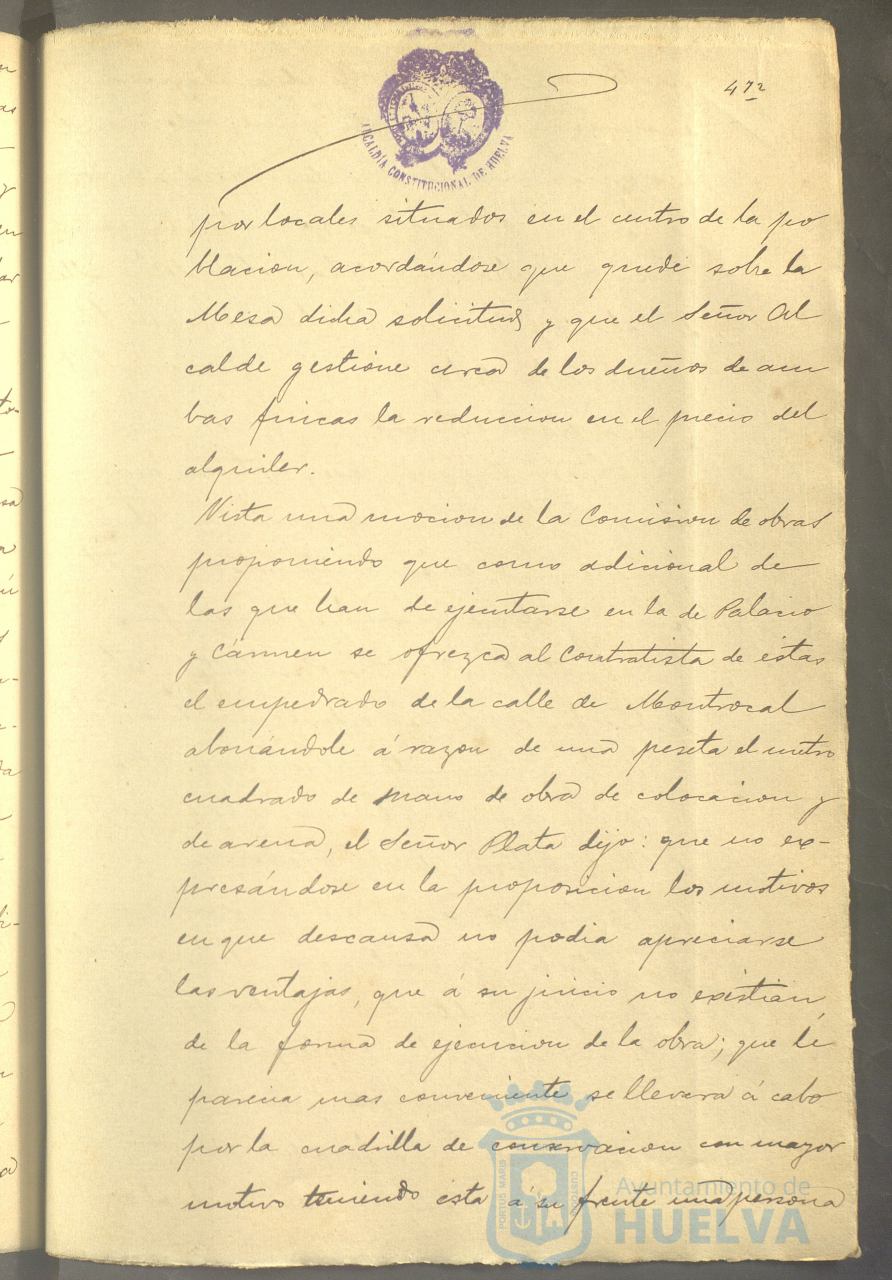 472
ALCALDÍA CONSTITUCIONAL DE HUELVA
por locales situados en el centro de la po
blacion, acordándose que quede sobre la
Mesa dicha solicitud y que el Señor Al
calde gestione cerca de los dueños de am
bas fincas la reduccion en el precio del
alquiler.
Vista una mocion de la Comision de obras
proponiendo que como adicional de
las que han de ejecutarse en la de Palacio
y Cármen se ofrezca al Contratista de éstas
el empedrado de la calle de Montrocal
abonándole á razon de una peseta el metro
cuadrado de mano de obra de colocacion y
de arena, el Señor Plata dijo: que no ex-
presándose en la proposicion los motivos
en que descansa no podia apreciarse
las ventajas, que á su juicio no existian,
de la forma de ejecucion de la obra; que le
parecia mas conveniente se llevara á cabo
por la cuadrilla de conservacion con mayor
motivo teniendo ésta á su frente una persona
PORTUS MARIS
Ayuntamiento de
HUELVA